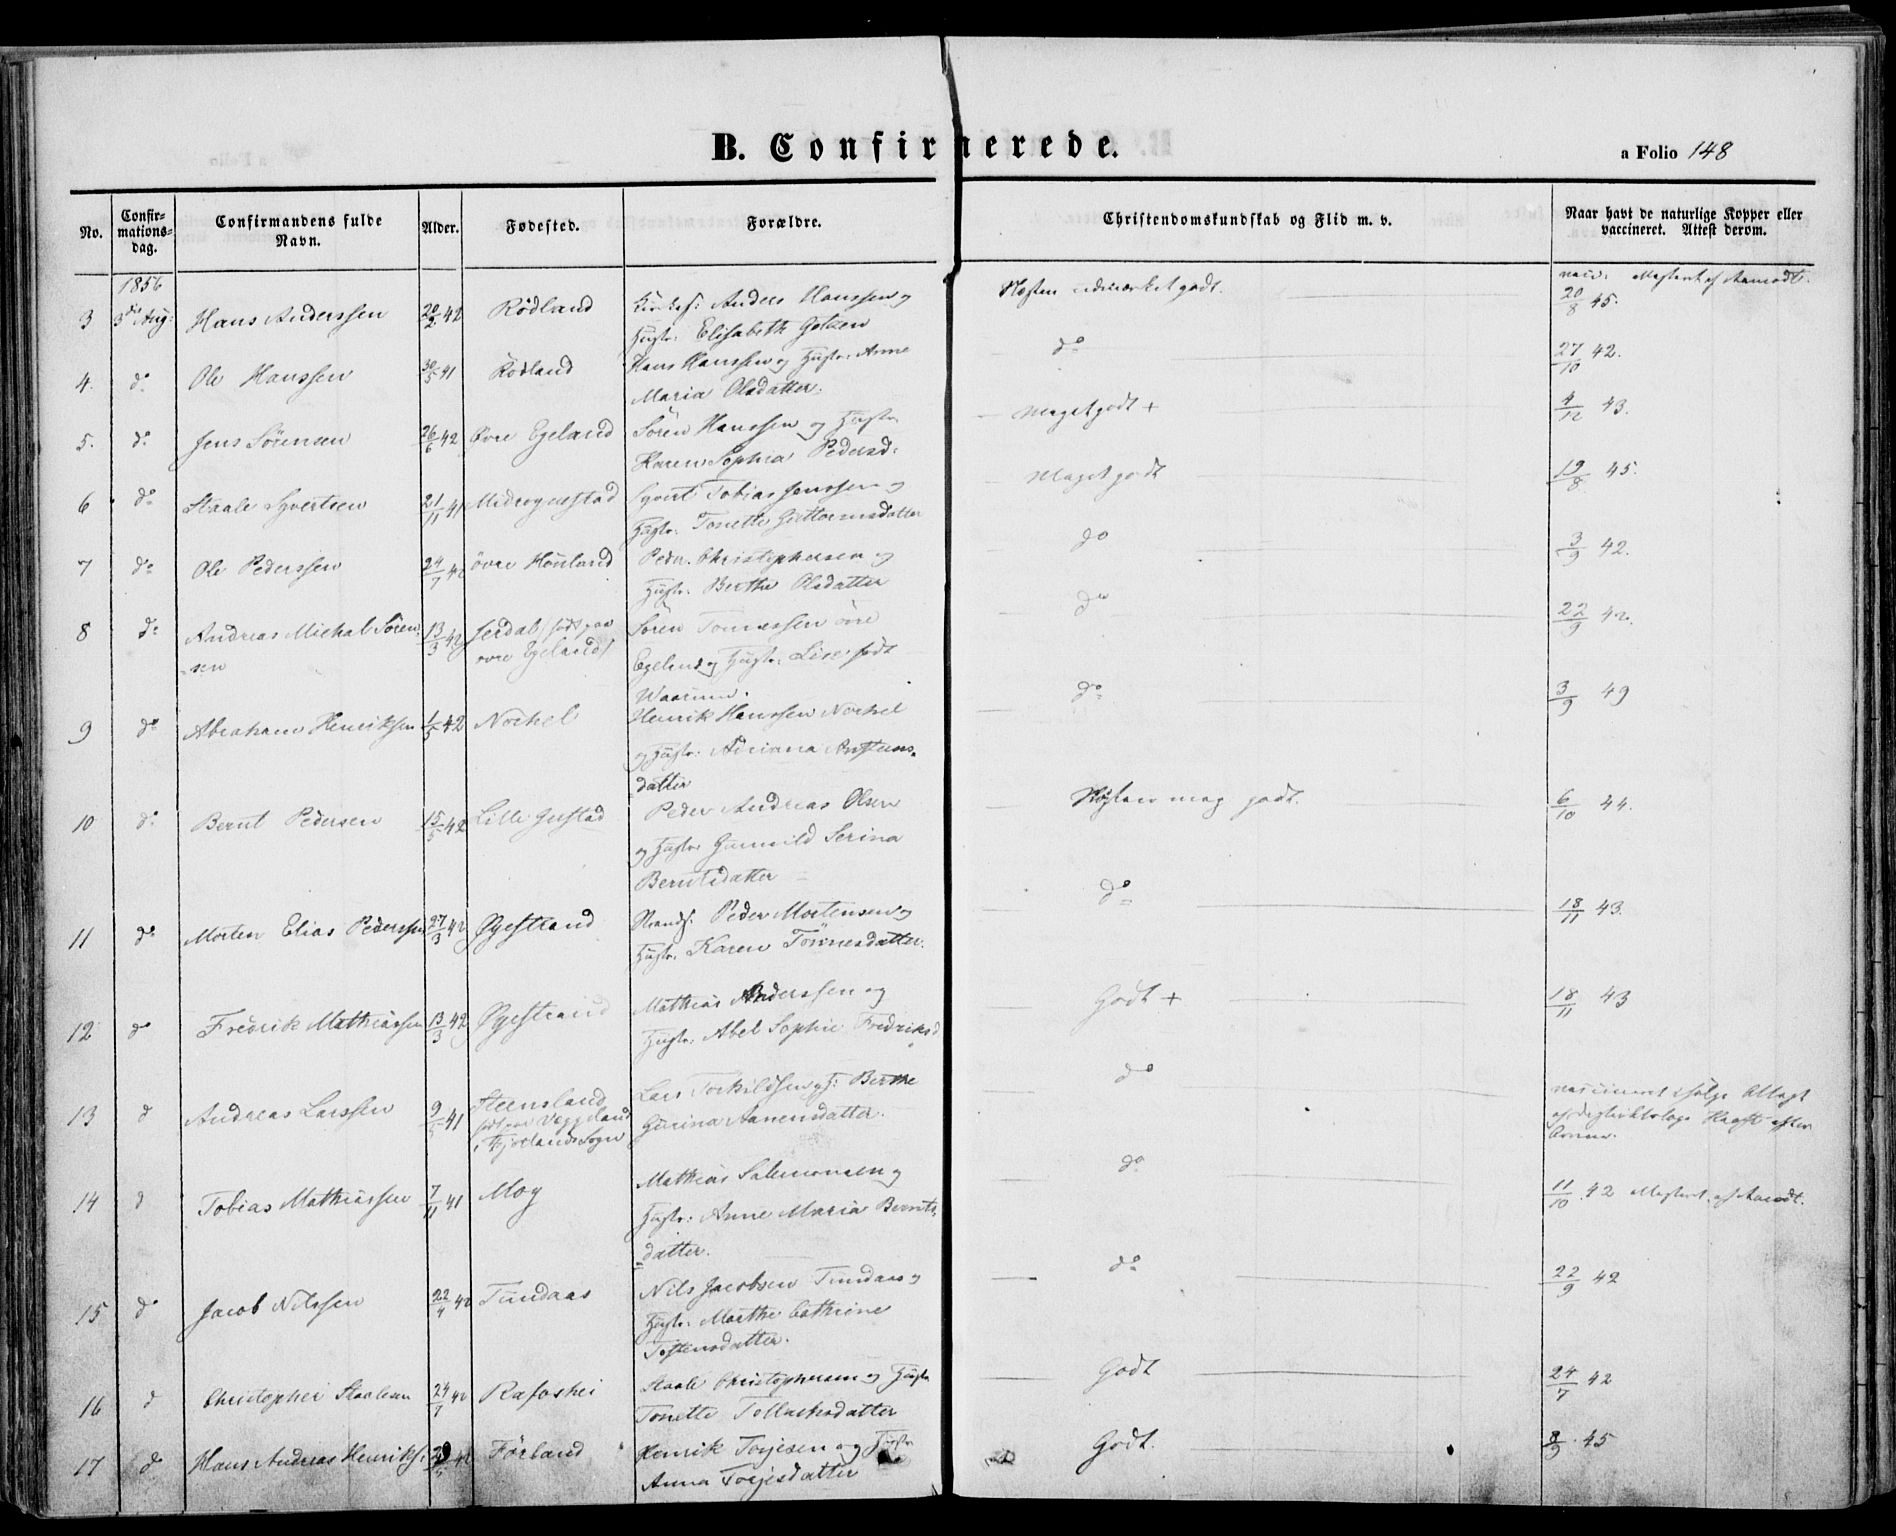 B. Confirmerede.
a Folio 148
No.
Confir-
mations-
dag.
Confirmandens fulde
Navn.
Alder.
Fødested.
Forældre.
Christendomskundskab og Flid m. v.
Naar havt de naturlige Kopper eller
vaccineret. Attest derom.
1856
3 3de Aug: Hans Anderssen 20/2 42 Rödland Anders Hanssen og
Hustr: Elisabeth
Næsten udmærket godt. 20/8 45.
4. do Ole Hanssen 30/5 41 Rödland Hans Hanssen og Hustr: Anne
Maria Olsdatter.
do 27/10 42.
5. do Jens Sörensen 26/6 42 Övre Egeland Sören Hanssen og Hustr.
Karen Sophia Pedersd:
Meget godt + 4/12 43.
6 do Staale Syvertsen 21/11 41 Syvert Tobias Jenssen og
Hustr. Tonette Guttormsdatter
Meget godt 19/8 45.
7 do Ole Pederssen 24/7 42 övre Hönland Peder Christophersen og
Hustr: Berthe Olsdatter
do 3/9 42.
8 do Andreas Michal Sören-
sen 13/3 42 födt paa
övre Egeland Sören Tönnessen övre
Egeland og Hustr. Lise födt
do 22/9 42.
9 do Abraham Henriksen 1/5 42 Nockel Henrik Hanssen Nockel
og Hustr: Adriana
datter
do 3/9 49
10 do Bernt Pedersen 15/5 42 Lille Peder Andreas Olsen
og Hustr. Gunnild Serina
Berntsdatter
Næsten meg. godt. 6/10 44.
11 do Morten Elias Pederssen 27/3 42 Öyestrand Strands: Peder Mortensen og
Hustr. Karen Tönnesdatter.
do 18/11 43.
12 do Fredrik Mathiassen 13/3 42 Öyestrand Mathias Anderssen og
Hustr. Abel Sophie Fredriksd
Godt + 18/11 43
13 d Andreas Larssen 9/ 41 Steensland
födt paa Veggeland
i Fjotlands Sogn Lars Torkildsen og H: Berthe
Gurina Aanensdatter.
do vaccineret ifølge Attest
af Districtslæge
14 d Tobias Mathiassen 7/11 41 Moy Mathias Salomonsen og
Hustr: Anne Maria Bernts-
datter.
do 11/10 42
15 do Jacob Nilssen 22/4 42 Tundaas Nils Jacobsen Tundaas og
Hustr. Marthe Cathrine
Tostensdatter.
do 22/9 42
16 d Christopher Staalesen 24/7 42 Rafoshei Staale Christophersen og Hustr
Tonette Tollachsdatter
Godt 24/7 42
17 d Hans Andreas Henriks: 42 Förland Henrik Torjesen og Hustr
Anna Torjesdatter
Godt. 8/9 45